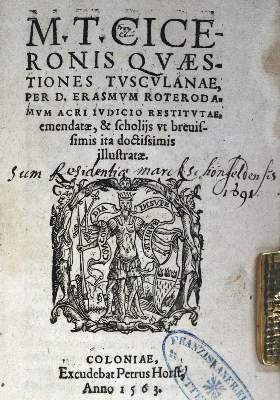 M. T. CICE-
RONIS QVÆS-
TIONES TVSCVLANAE,
PER D. ERASMVM ROTERODA-
MVM ACRI IVDICIO RESTITVTAE,
emendatæ, & scholijs vt breuis-
simis ita doctissimis
illustratæ.
Sum Residentiæ
1691
COLONIAE,
Excudebat Petrus Horst,
Anno 1563.